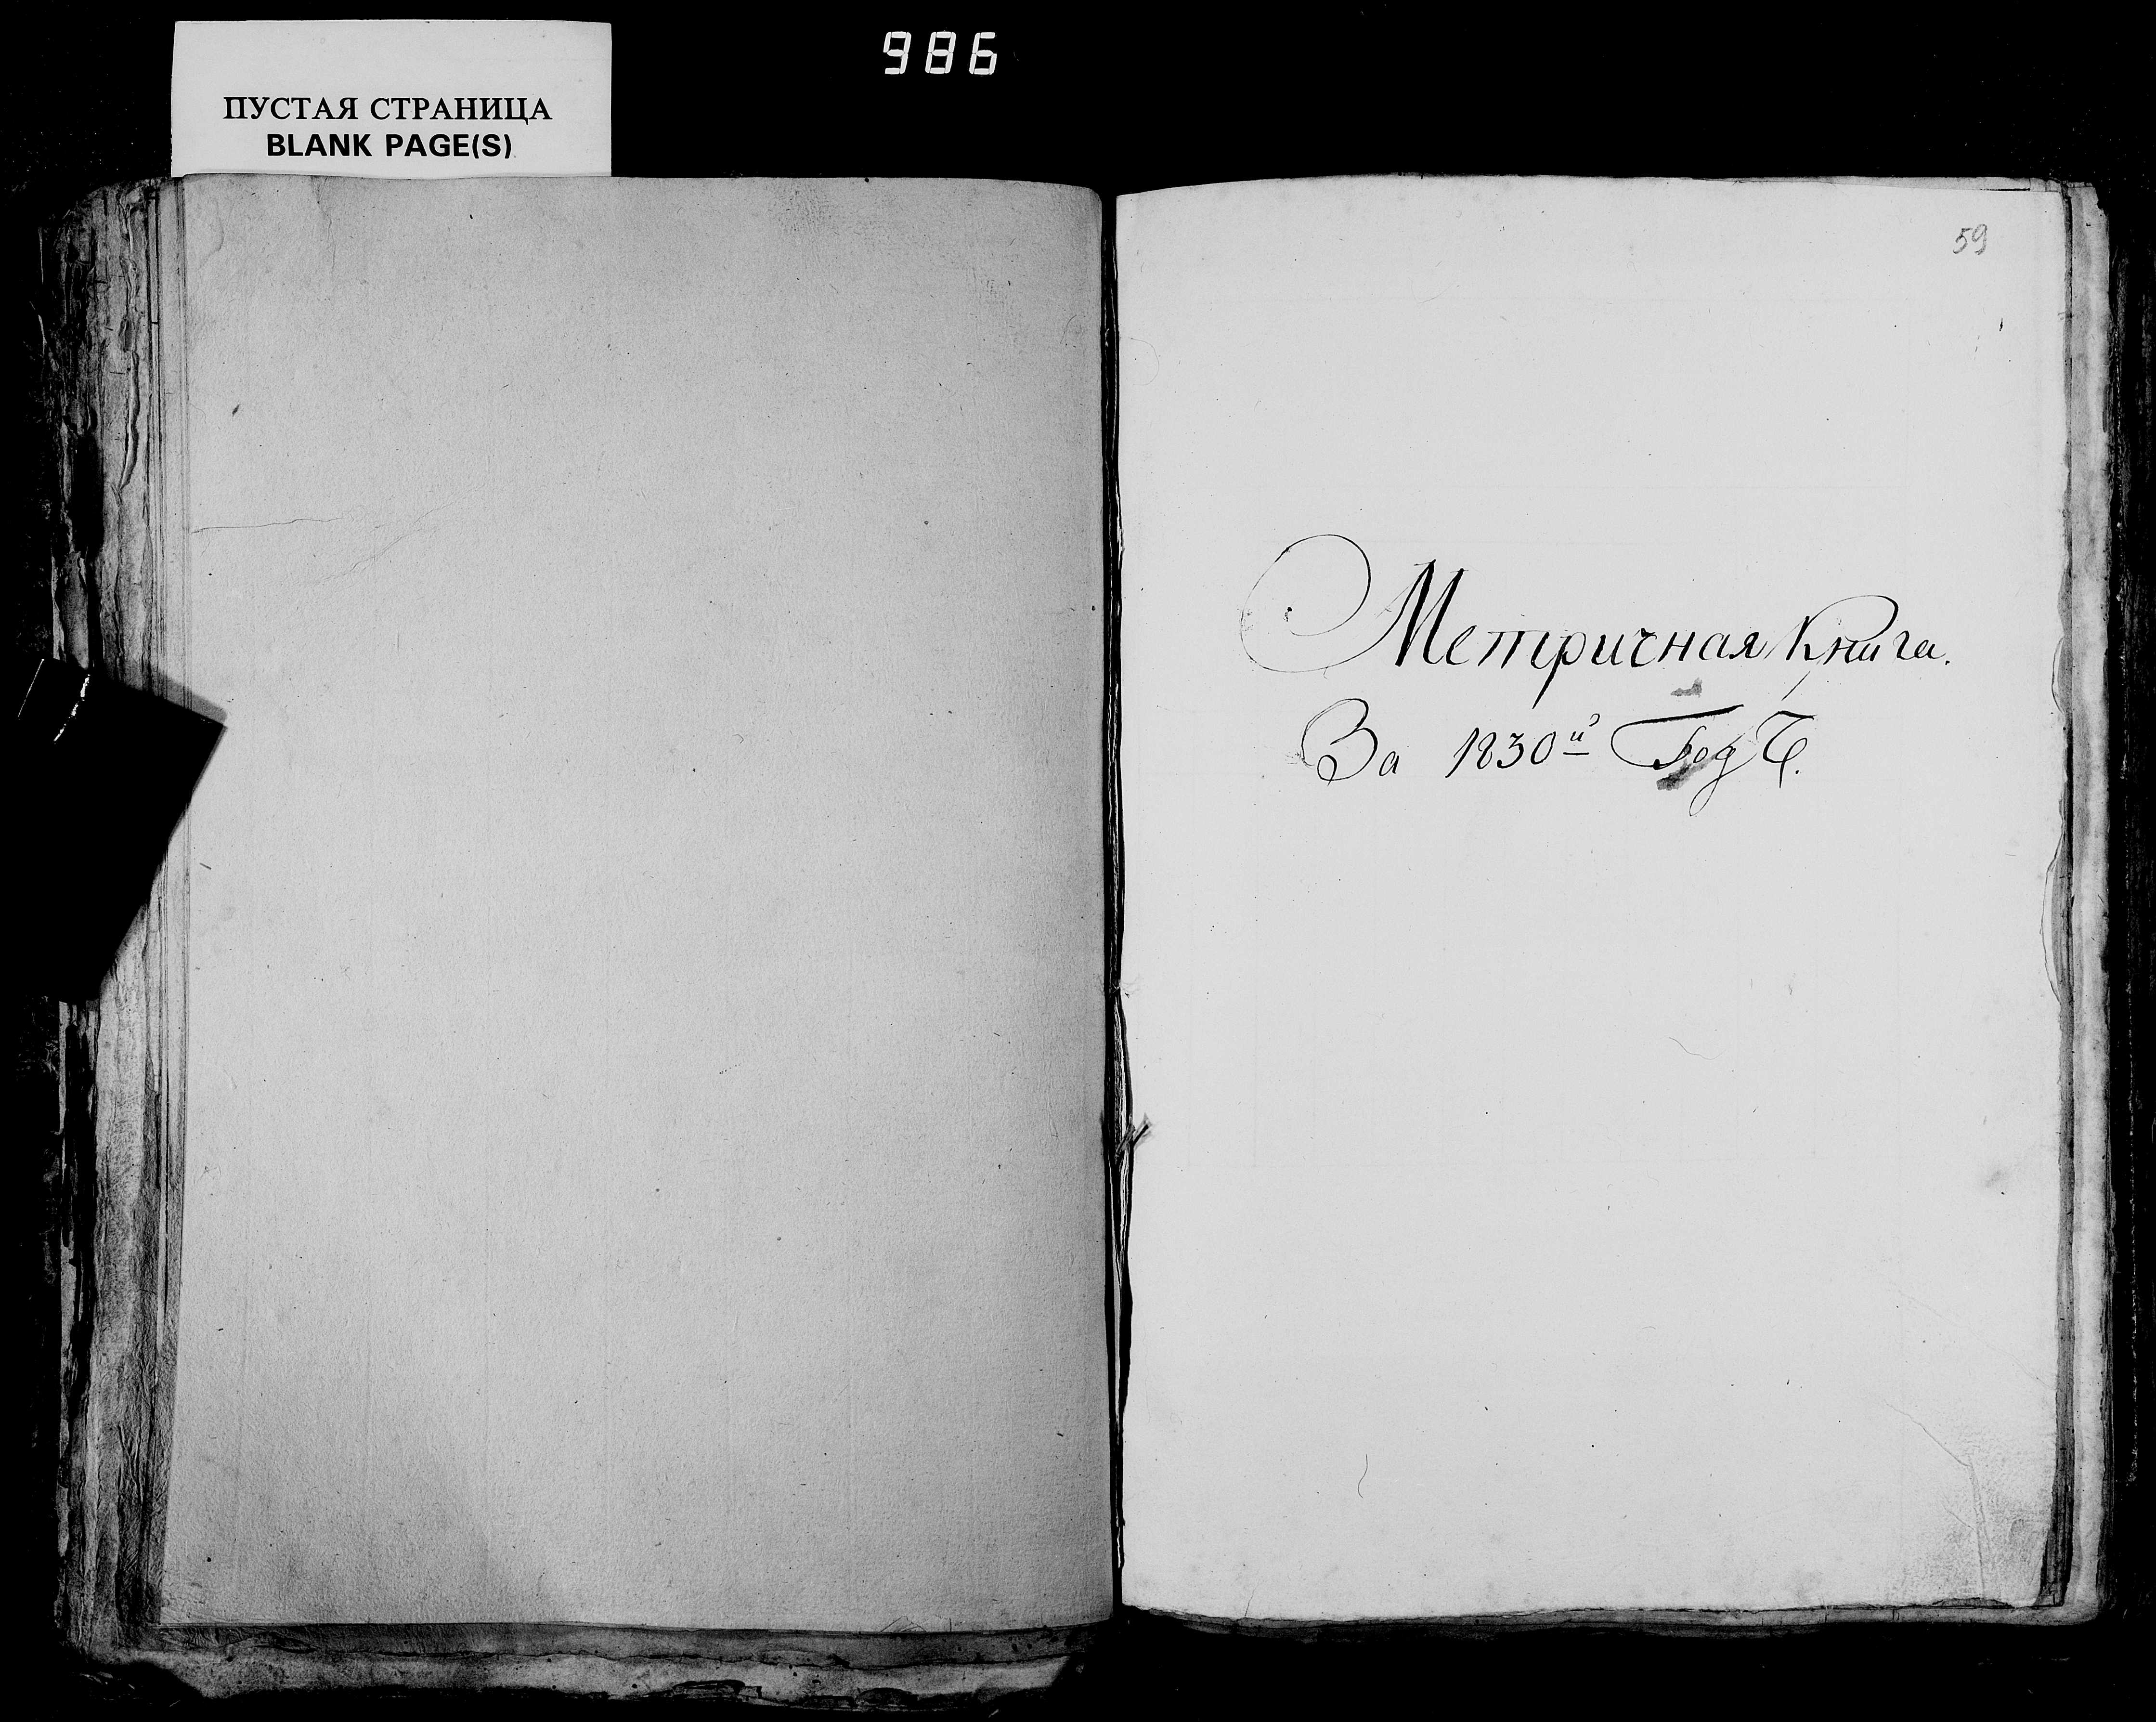 986
ПУСТАЯ СТРАНИЦА
BLANK PAGE(S)
59
Метричная Книга.
За 1830й Годъ.